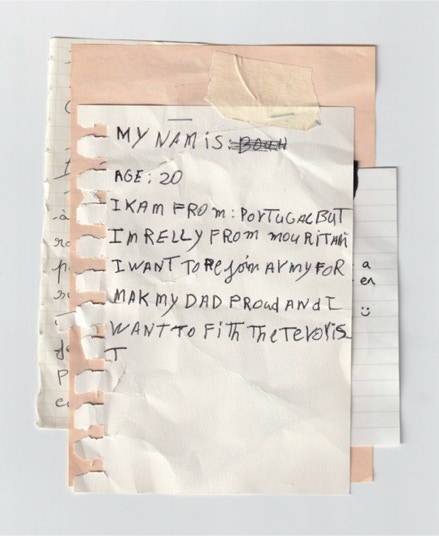 MY NAM iS:
AGE: 20
I KAM FROm: PORTUGAL BUT
Im RELLY FROM mOURiTANi
I WANT TO Rejoin ARMY FOR
MAK MY DAD PROUD AND I
WANT TO FiTH THe TeRORiS
T
a
en
:)